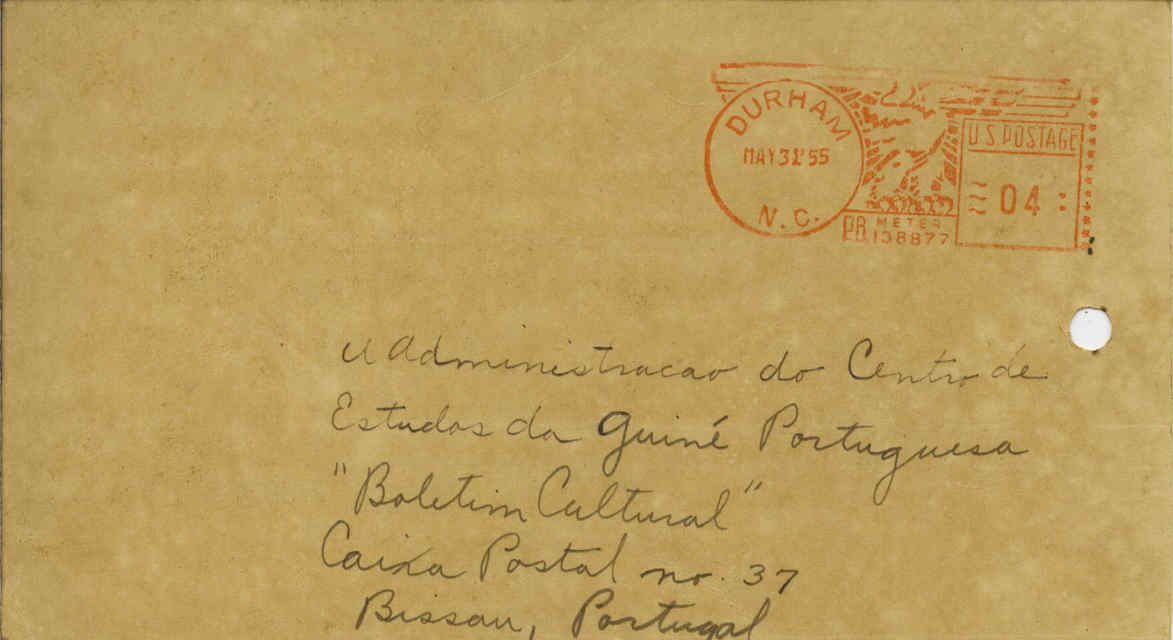 DURHAM
MAY 31 '55
N.C.
U.S. POSTAGE
04
PB METER
138877
Administracao do Centro de
Estudos da Guiné Portuguesa
"Boletim Cultural"
Caixa Postal no. 37
Bissau, Portugal